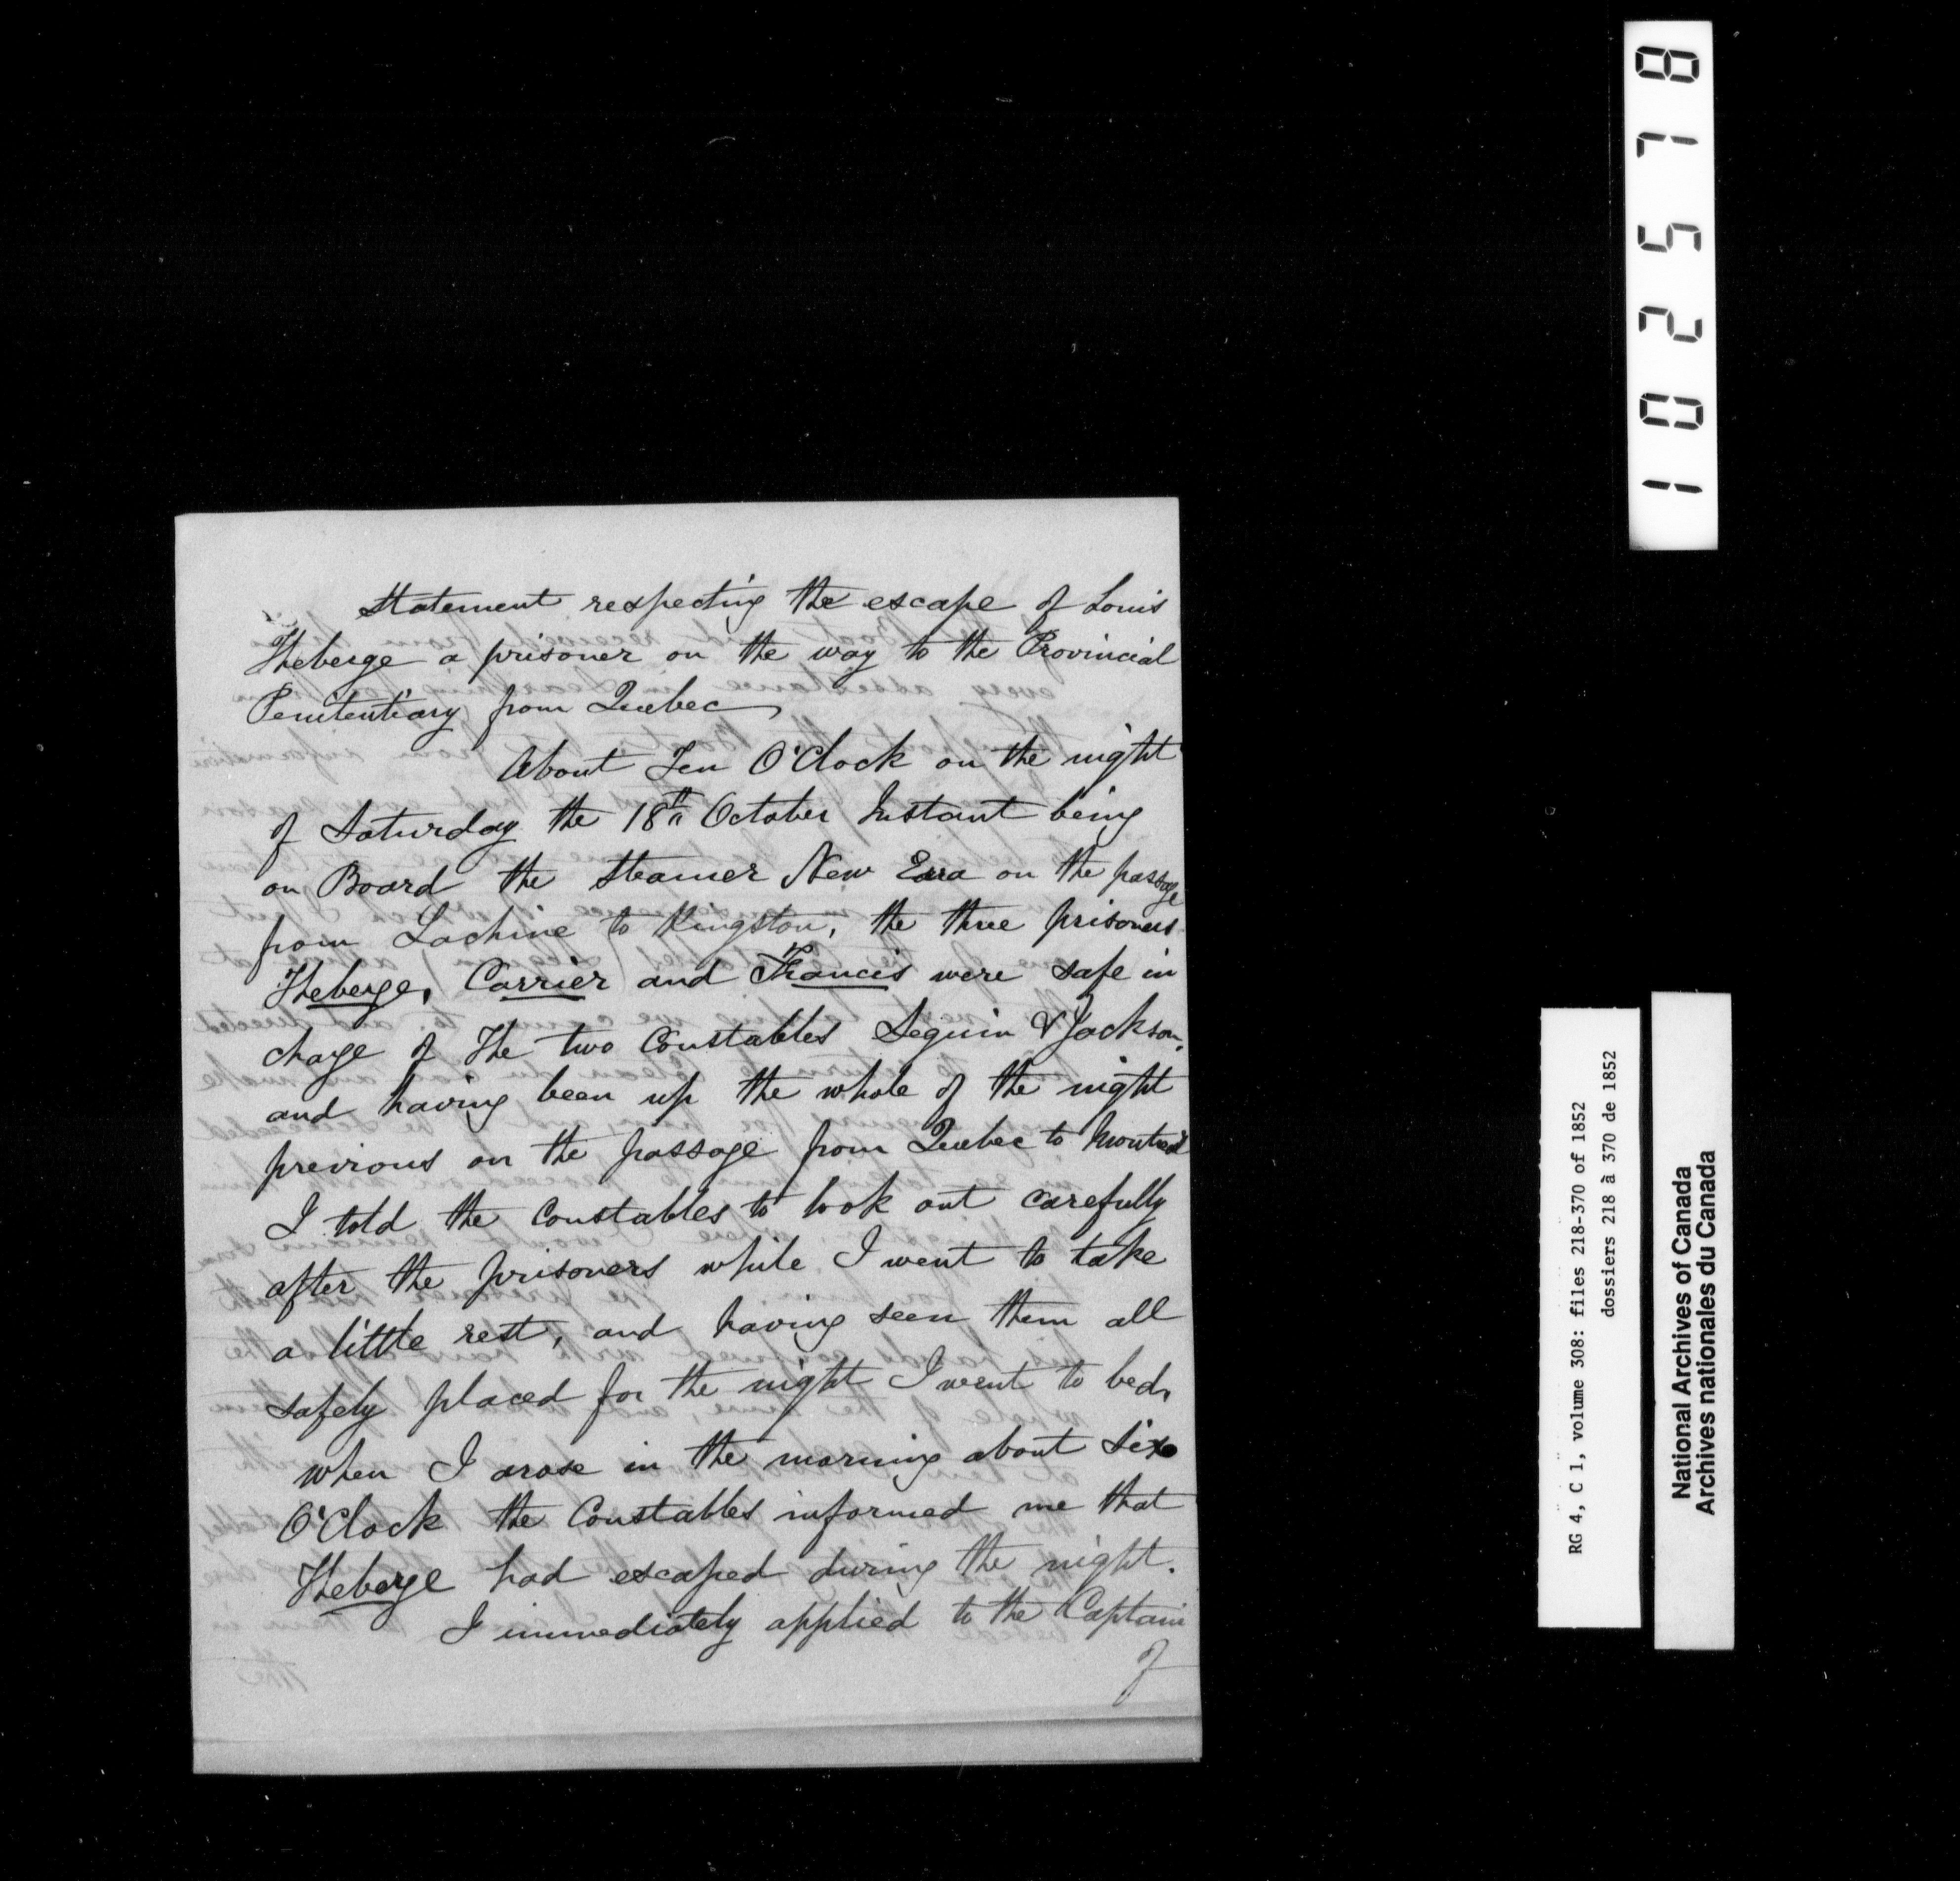 Statement respecting the escape of Louis
Theberge a prisoner on the way to the Provincial
Penitentiary from Quebec
About Ten O'Clock on the night
of Saturday the 18th October Instant being
on Board the Steamer New Era on the passage
from Lachine to Kingston, the three prisoners
Theberge, Carrier and Francis were safe in
charge of the two Constables Seguin & Jackson,
and having been up the whole of the night
previous on the passage from Quebec to Montreal
I told the Constables to look out carefully
after the prisoners while I went to take
a little rest, and having seen them all
safely placed for the night I went to bed,
when I arose in the morning about six
O'Clock the Constables informed me that
Theberge had escaped during the night.
I immediately applied to the Captain
of
102578
RG 4, C 1, volume 308: files 218-370 of 1852
dossiers 218 à 370 de 1852
National Archives of Canada
Archives nationales du Canada